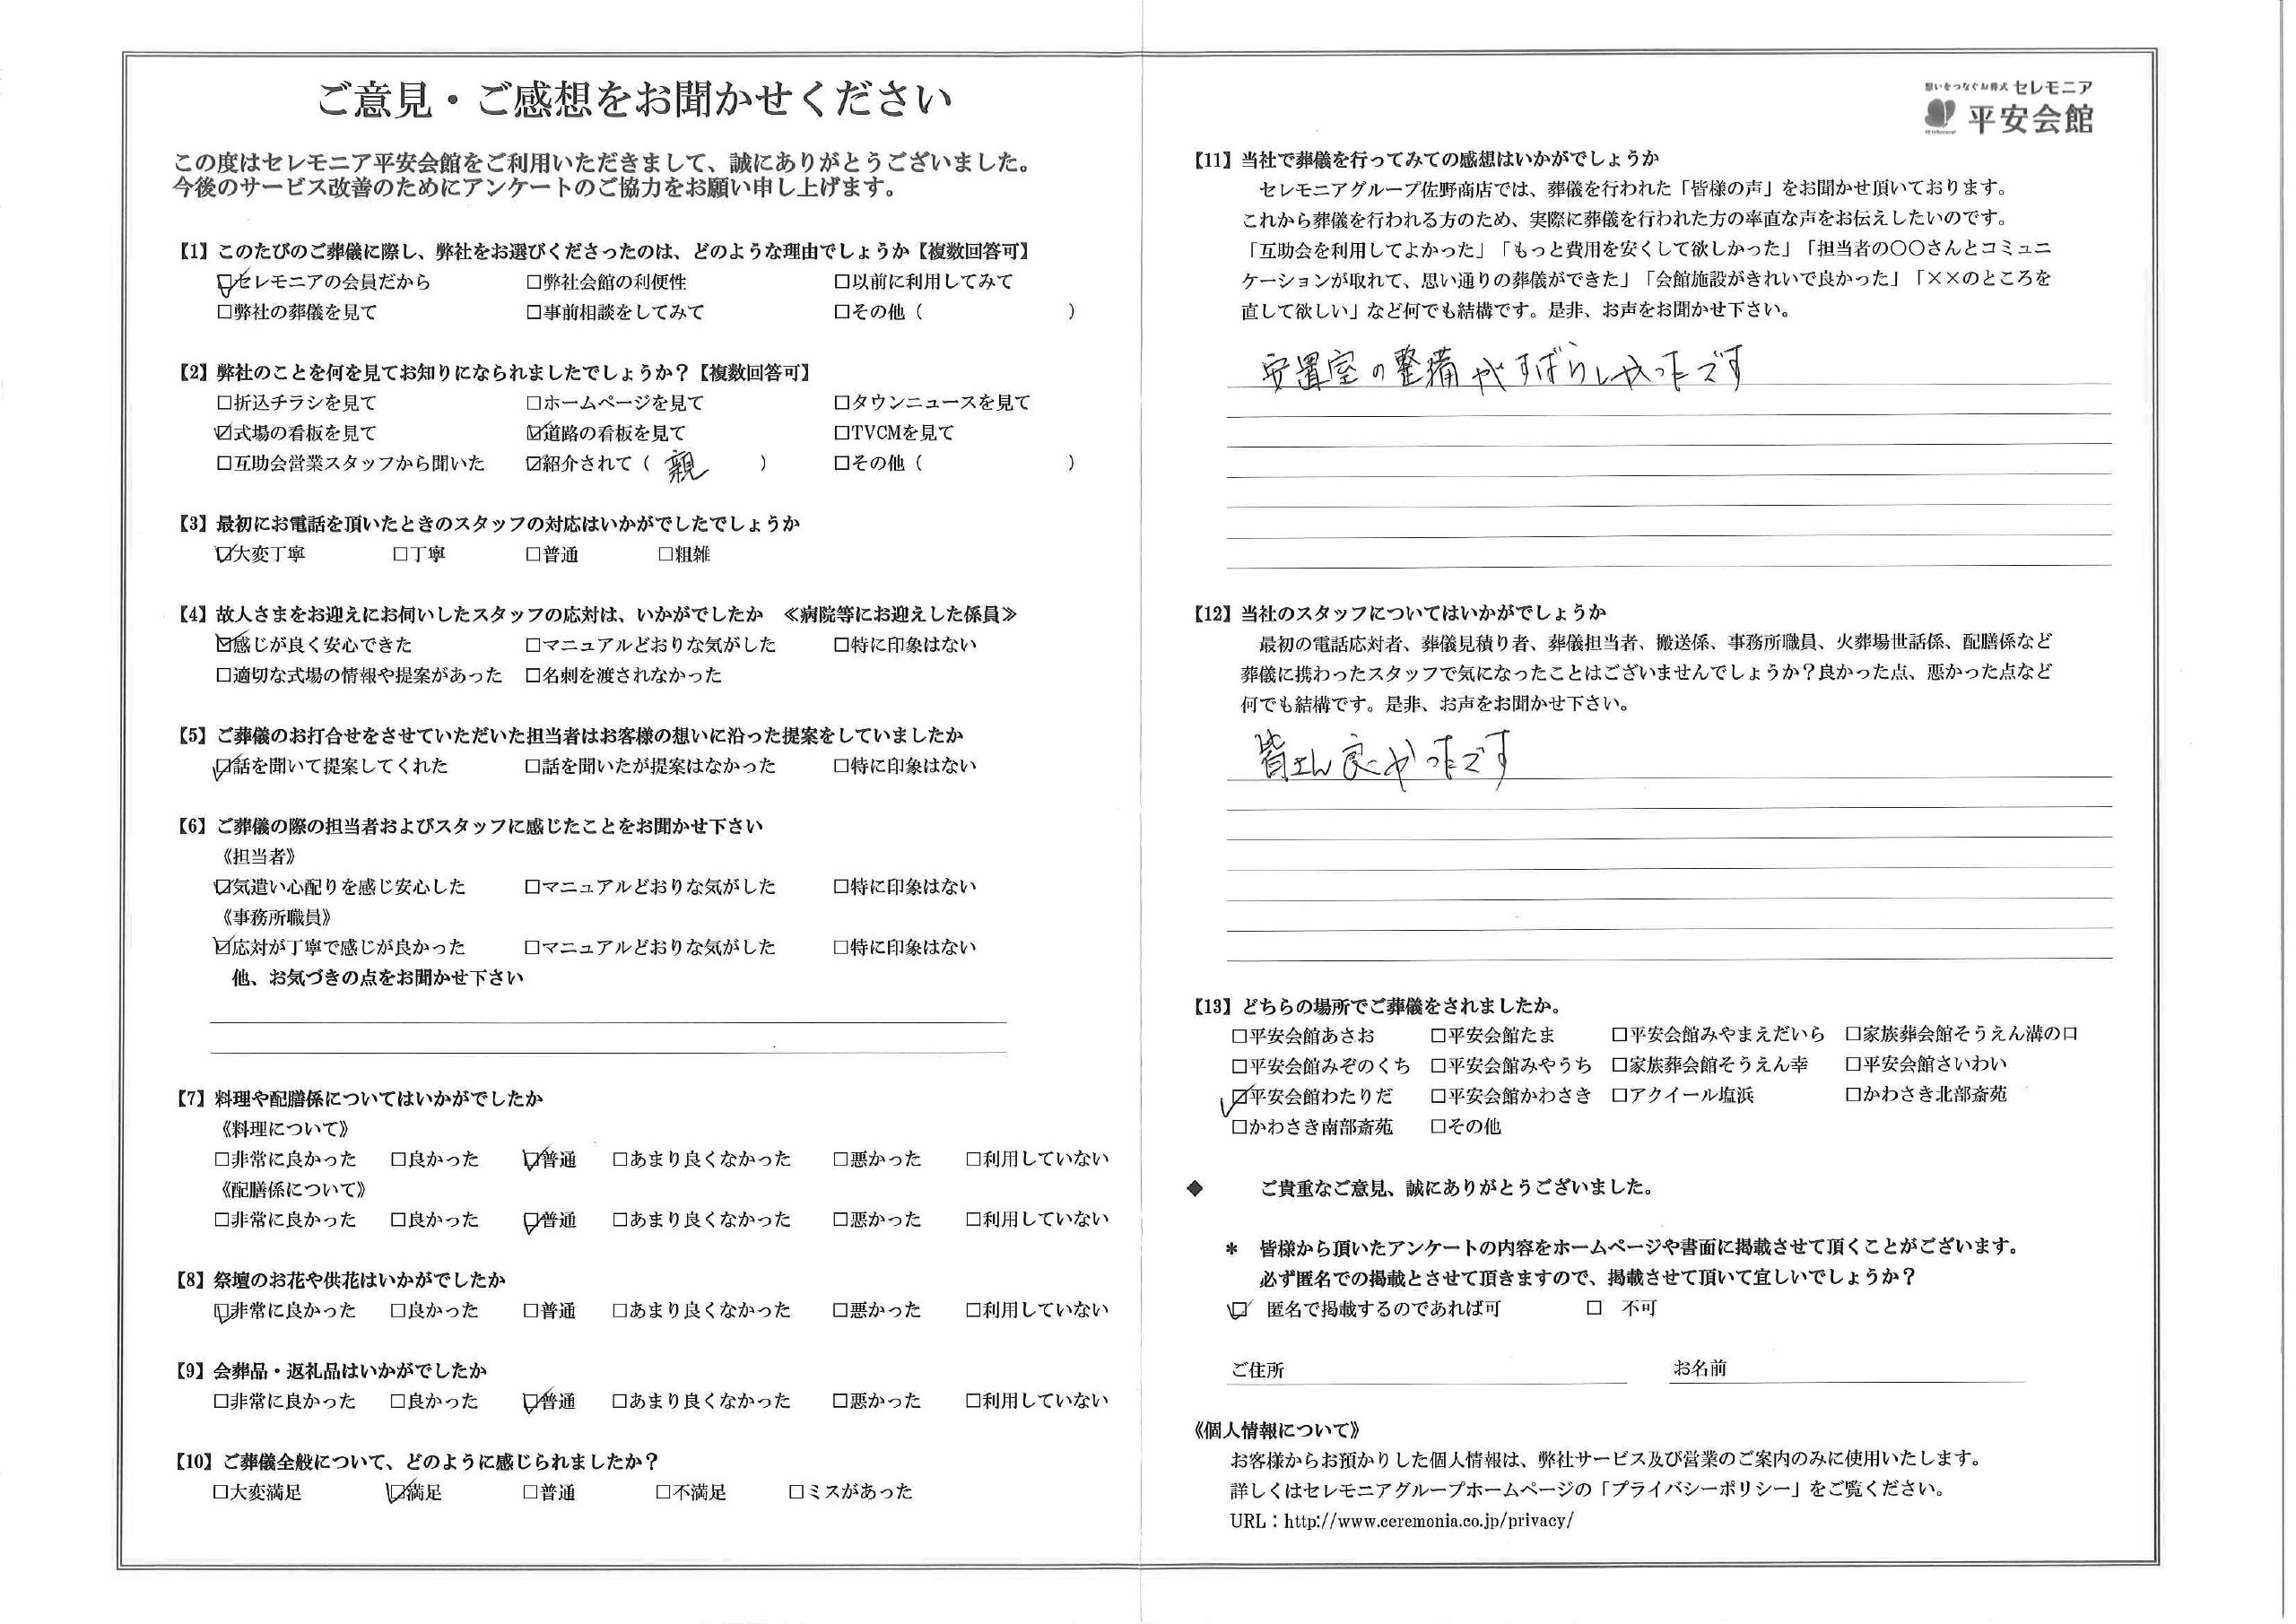 ご意見・ご感想をお聞かせください
この度はセレモニア平安会館をご利用いただきまして、誠にありがとうございました。
今後のサービス改善のためにアンケートのご協力をお願い申し上げます。
【1】このたびのご葬儀に際し、弊社をお選びくださったのは、どのような理由でしょうか【複数回答可】
☑セレモニアの会員だから　□弊社会館の利便性　□以前に利用してみて
□弊社の葬儀を見て　□事前相談をしてみて　□その他（　　　）
【2】弊社のことを何を見てお知りになられましたでしょうか？【複数回答可】
□折込チラシを見て　□ホームページを見て　□タウンニュースを見て
☑式場の看板を見て　☑道路の看板を見て　□TVCMを見て
□互助会営業スタッフから聞いた　☑紹介されて（ 親 ）　□その他（　　　）
【3】最初にお電話を頂いたときのスタッフの対応はいかがでしたでしょうか
☑大変丁寧　□丁寧　□普通　□粗雑
【4】故人さまをお迎えにお伺いしたスタッフの応対は、いかがでしたか　≪病院等にお迎えした係員≫
☑感じが良く安心できた　□マニュアルどおりな気がした　□特に印象はない
□適切な式場の情報や提案があった　□名刺を渡されなかった
【5】ご葬儀のお打合せをさせていただいた担当者はお客様の想いに沿った提案をしていましたか
☑話を聞いて提案してくれた　□話を聞いたが提案はなかった　□特に印象はない
【6】ご葬儀の際の担当者およびスタッフに感じたことをお聞かせ下さい
《担当者》
☑気遣い心配りを感じ安心した　□マニュアルどおりな気がした　□特に印象はない
《事務所職員》
☑応対が丁寧で感じが良かった　□マニュアルどおりな気がした　□特に印象はない
他、お気づきの点をお聞かせ下さい
【7】料理や配膳係についてはいかがでしたか
《料理について》
□非常に良かった　□良かった　☑普通　□あまり良くなかった　□悪かった　□利用していない
《配膳係について》
□非常に良かった　□良かった　☑普通　□あまり良くなかった　□悪かった　□利用していない
【8】祭壇のお花や供花はいかがでしたか
☑非常に良かった　□良かった　□普通　□あまり良くなかった　□悪かった　□利用していない
【9】会葬品・返礼品はいかがでしたか
□非常に良かった　□良かった　☑普通　□あまり良くなかった　□悪かった　□利用していない
【10】ご葬儀全般について、どのように感じられましたか？
□大変満足　☑満足　□普通　□不満足　□ミスがあった
想いをつなぐお葬式 セレモニア
平安会館
【11】当社で葬儀を行ってみての感想はいかがでしょうか
セレモニアグループ佐野商店では、葬儀を行われた「皆様の声」をお聞かせ頂いております。
これから葬儀を行われる方のため、実際に葬儀を行われた方の率直な声をお伝えしたいのです。
「互助会を利用してよかった」「もっと費用を安くして欲しかった」「担当者の〇〇さんとコミュニ
ケーションが取れて、思い通りの葬儀ができた」「会館施設がきれいで良かった」「××のところを
直して欲しい」など何でも結構です。是非、お声をお聞かせ下さい。
安置室の整備がすばらしかったです
【12】当社のスタッフについてはいかがでしょうか
最初の電話応対者、葬儀見積り者、葬儀担当者、搬送係、事務所職員、火葬場世話係、配膳係など
葬儀に携わったスタッフで気になったことはございませんでしょうか？良かった点、悪かった点など
何でも結構です。是非、お声をお聞かせ下さい。
皆さん良かったです
【13】どちらの場所でご葬儀をされましたか。
□平安会館あさお　□平安会館たま　□平安会館みやまえだいら　□家族葬会館そうえん溝の口
□平安会館みぞのくち　□平安会館みやうち　□家族葬会館そうえん幸　□平安会館さいわい
☑平安会館わたりだ　□平安会館かわさき　□アクイール塩浜　□かわさき北部斎苑
□かわさき南部斎苑　□その他
◆　ご貴重なご意見、誠にありがとうございました。
＊　皆様から頂いたアンケートの内容をホームページや書面に掲載させて頂くことがございます。
必ず匿名での掲載とさせて頂きますので、掲載させて頂いて宜しいでしょうか？
☑　匿名で掲載するのであれば可　□　不可
ご住所　お名前
《個人情報について》
お客様からお預かりした個人情報は、弊社サービス及び営業のご案内のみに使用いたします。
詳しくはセレモニアグループホームページの「プライバシーポリシー」をご覧ください。
URL：http://www.ceremonia.co.jp/privacy/